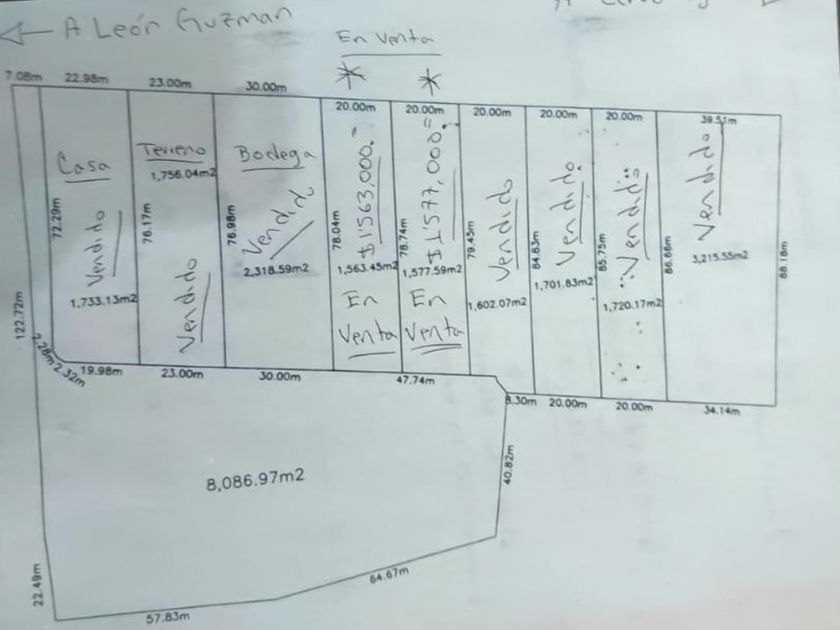 ← A León Guzman
En Venta
* *
7.08m 22.98m 23.00m 30.00m 20.00m 20.00m 20.00m 20.00m 20.00m 39.51m
Casa Terreno Bodega
1,756.04m2
Vendido Vendido Vendido $1'563,000.= $1'577,000= Vendido Vendido Vendido Vendido
72.29m 76.17m 76.98m 78.04m 78.74m 79.45m 84.83m 85.75m 86.66m 88.18m
1,733.13m2 2,318.59m2 1,563.45m2 1,577.59m2 1,602.07m2 1,701.83m2 1,720.17m2 3,215.55m2
En Venta En Venta
122.72m
2.28m 2.32m 19.98m 23.00m 30.00m 47.74m 8.30m 20.00m 20.00m 34.14m
8,086.97m2
40.82m
22.49m 57.83m 64.67m